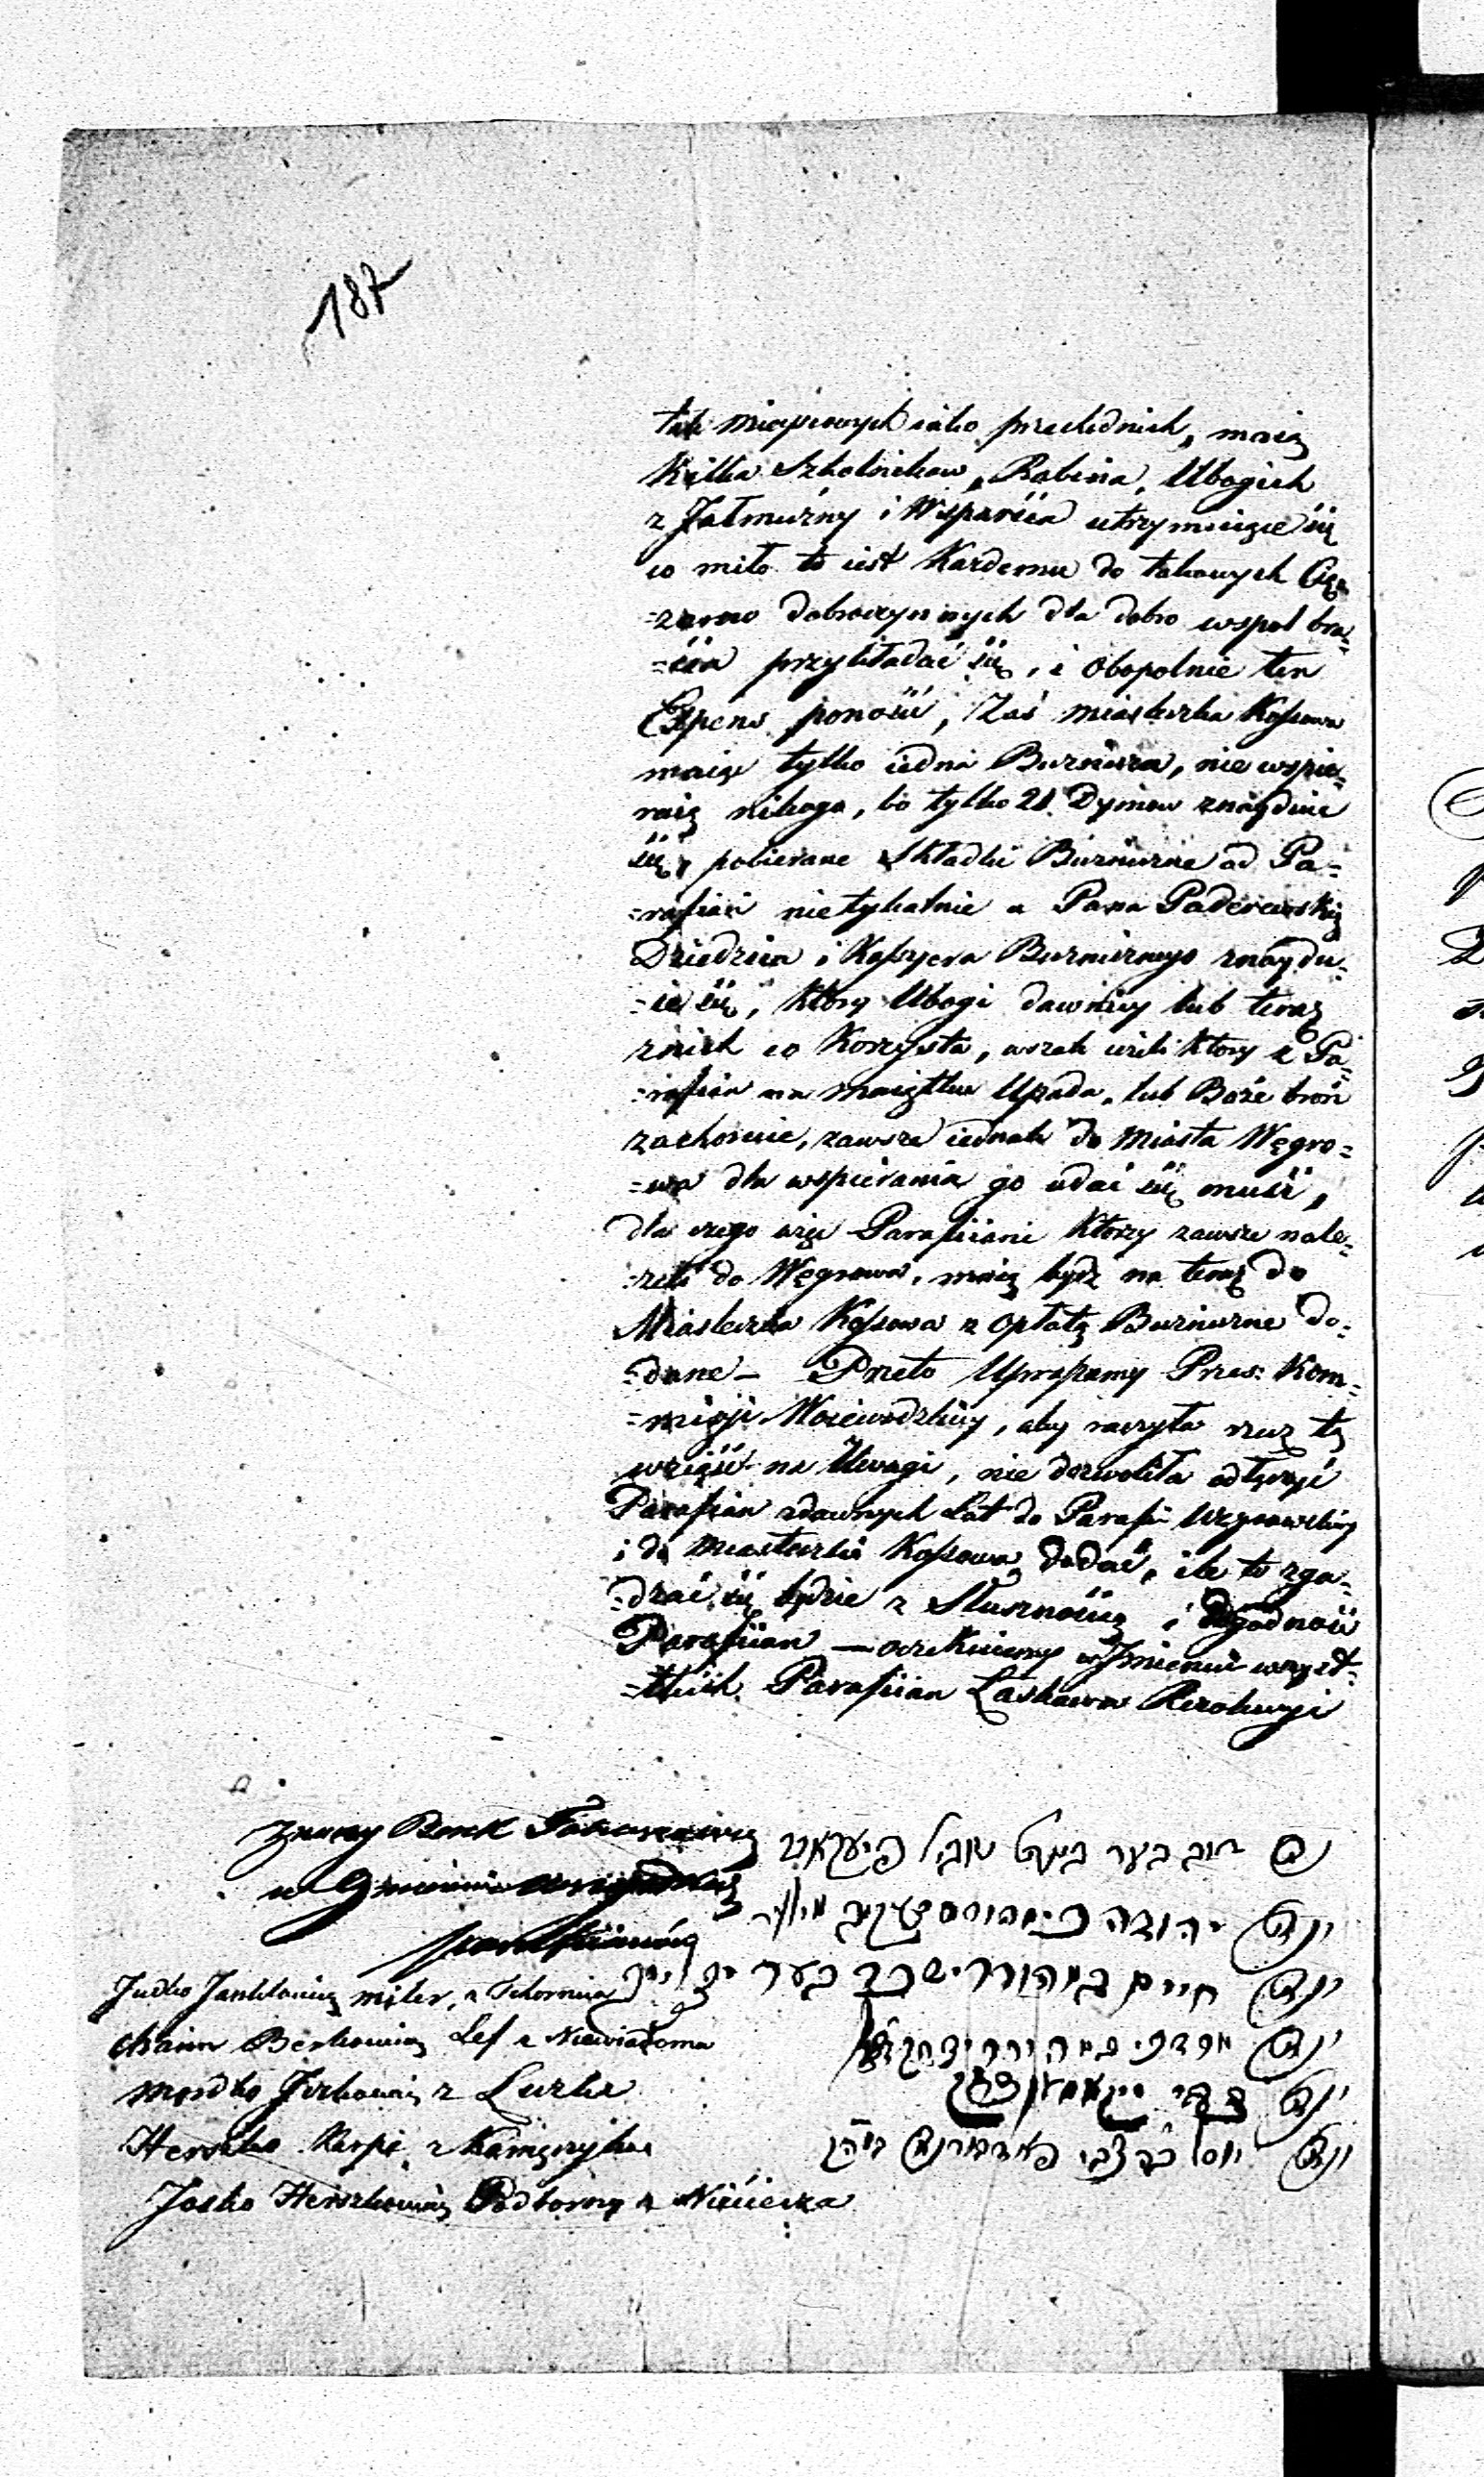 187
tak miejscowych iako przechodnich, maią
kilka Szkolnikow, Rabina, Ubogich
z Jałmużny i Wsparćia utrzymuiące śię
co miło to iest Kazdemu do takowych Cię=
=zarow dobroczynnych dla dobro wspol bra=
=ćia przykładać śię, i obopolnie ten
Expens ponośić, Zaś miasteczka Kossowa
maiąc tylko iedną Buznicza, nie wspie=
raią nikogo, bo tylko 21 Dymow znayduie
śię, pobierane Składki Buzniczne od Pa=
=rafian nietykalnie u Pana Paderewskią
Dziedzica i Kassyera Buznicznego znaydu=
=ie śię, ktory Ubogi dawniey lub teraz
znich co Korzysta, wszak ieżeli ktory z Pa=
=rafian na maiątku Upada, lub Boże broń
zachoruie, zawsze iednak do Miasta Węgro=
=wa dla wspierania go udać śię muśi,
dla czego więc Parafiianie ktorzy zawsze nale=
=żeli do Węgrowa, maią bydź na teraz do
Miasteczka Kossowa z opłatą Buzniczne do=
=dane — Przeto Upraszamy Prześ: Kom=
=missji Woiewodzkiey, aby raczyła rzecz tę
wziąść na Uwagi, nie dozwoliła odłączyć
Parafian zdawnych Lat do Parafii Węgrowskiey
i do miasteczka Kossowa dodać, ile to zga=
=dzać śię będzie z Słusznośćią i
Parafiian — oczekuiemy w Imieniu wszyst=
=tkich Parafiian Łaskawa Rezolucyi
Znany Berek
w Imieniu
parafiianów
Judko Janklowicz miler, z
Chaim Berkowicz Lef z Niewiadoma
Mordko Jckowicz z Luzka
Herszko Karpi z Kamęczyka
Josko Herszkowicz Podborny z Niećiecza
נם בער
ונם יהודה
ונם חיים במהורר ישכר בער
ונם מרדכי במהורר יצחק
ונם צבי
ונם יוסל צבי